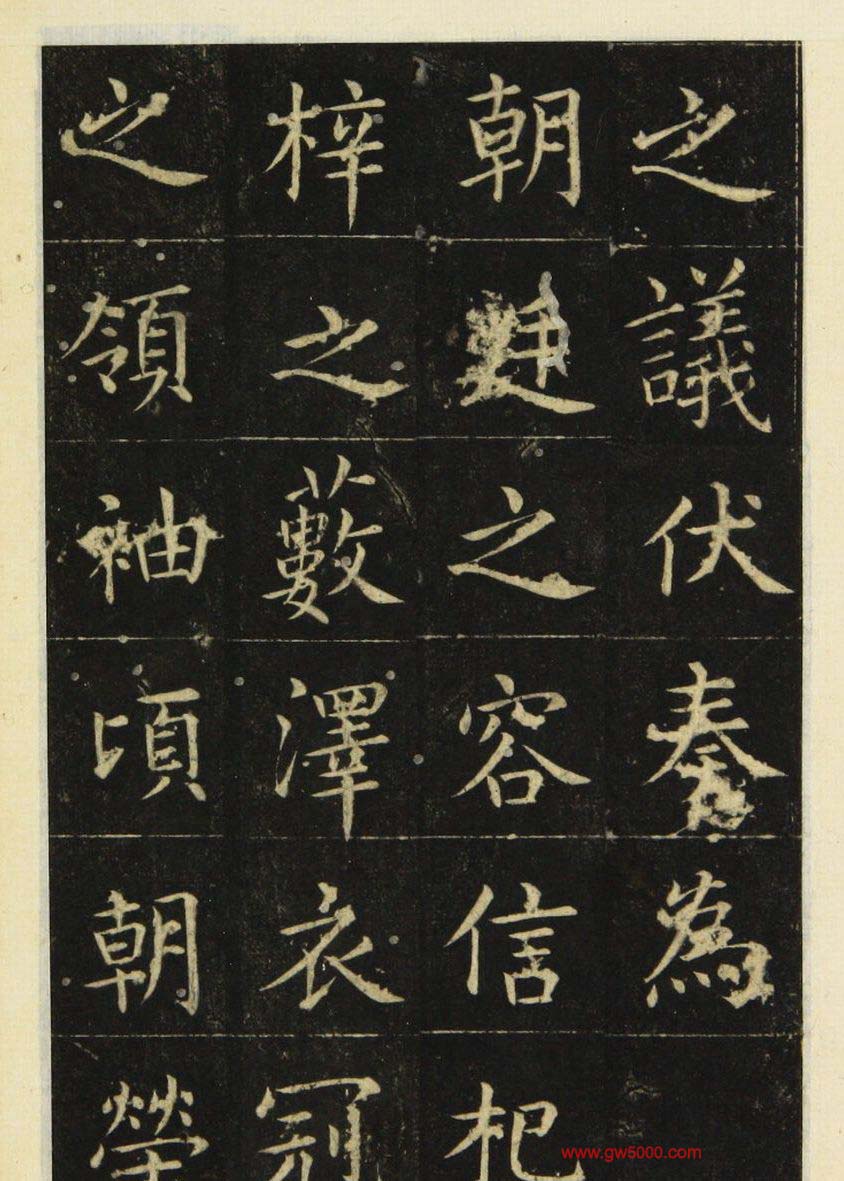 之議伏奏為
朝廷之容信杞
梓之藪澤衣冠
之領袖頃朝榮
www.gw5000.com